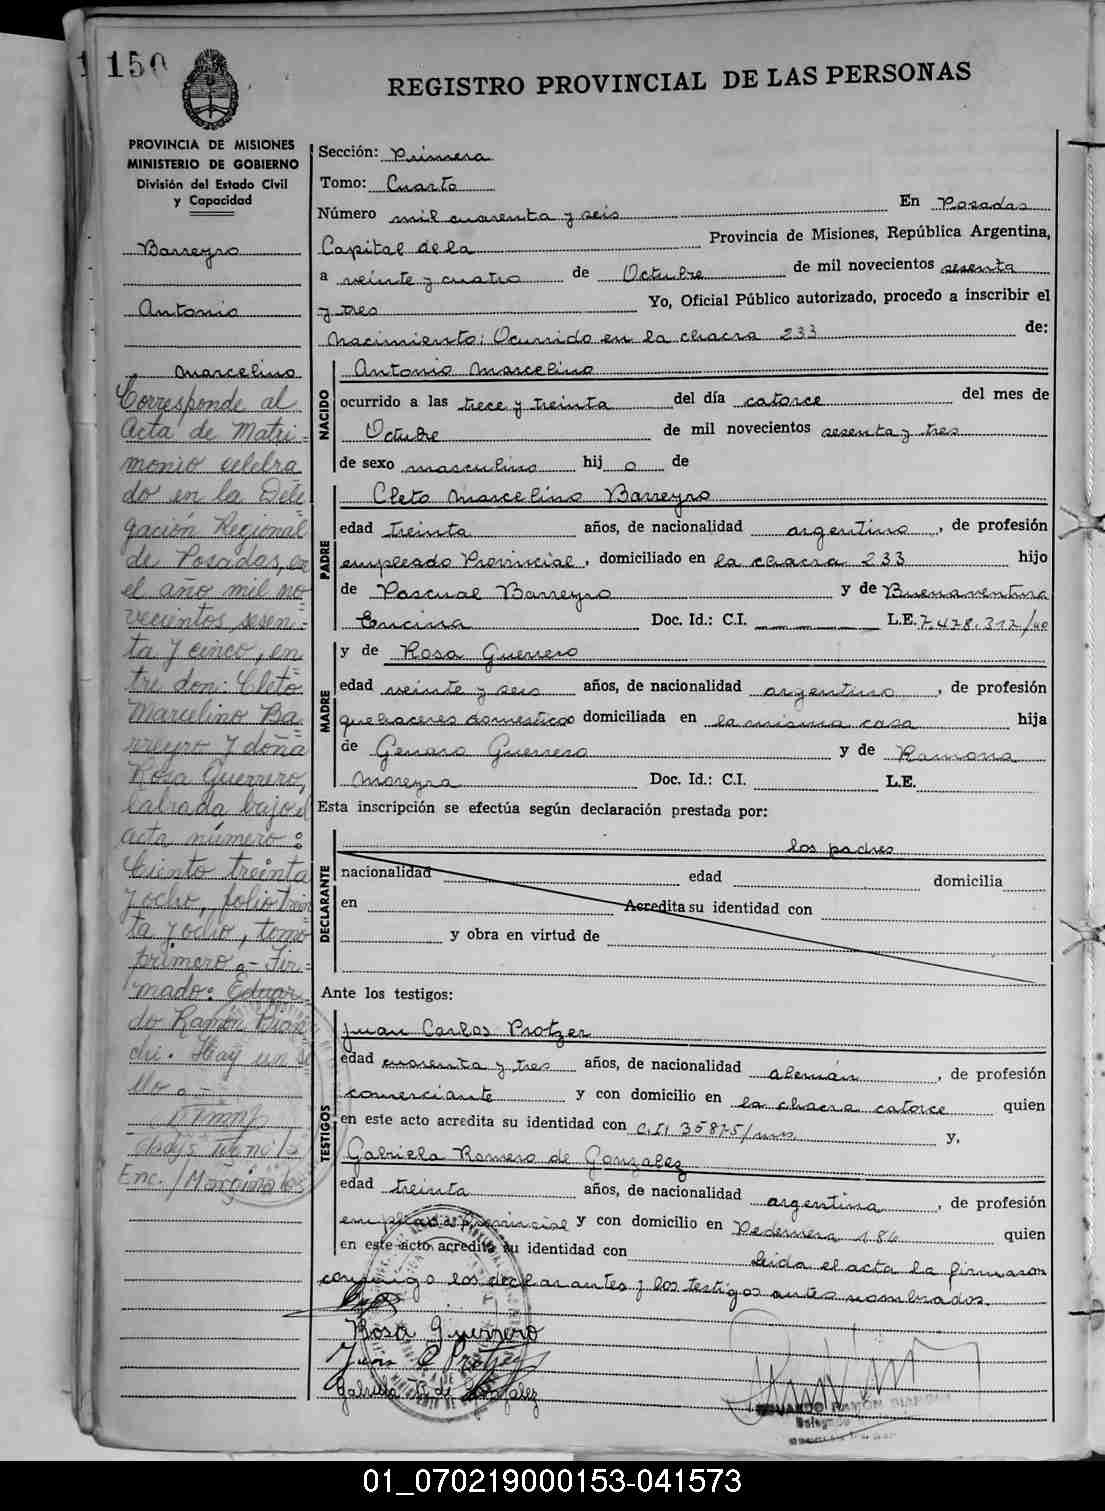 150
REGISTRO PROVINCIAL DE LAS PERSONAS
PROVINCIA DE MISIONES
MINISTERIO DE GOBIERNO
División del Estado Civil
y Capacidad
Barreyro
Antonio
Marcelino
Corresponde al
Acta de Matri=
monio celebra
do en la Dele=
gación Regional
de Posadas, en
el año mil no
vecientos sesen=
ta y cinco, en
tre don: Cleto
Marcelino Ba
rreyro y doña
Rosa Guerrero,
labrada bajo el
acta número:
Ciento treinta
y ocho, folio trein
ta y ocho, tomo
primero.- Fir=
mado: Eduar
do Ramón Bian
chi. Hay un se
llo.-
Enc./Marginales
Sección: Primera
Tomo: Cuarto
Número mil cuarenta y seis En Posadas
Capital de la Provincia de Misiones, República Argentina,
a veinte y cuatro de Octubre de mil novecientos sesenta
y tres Yo, Oficial Público autorizado, procedo a inscribir el
Nacimiento: Ocurrido en la chacra 233 de:
NACIDO
Antonio Marcelino
ocurrido a las trece y treinta del día catorce del mes de
Octubre de mil novecientos sesenta y tres
de sexo masculino hij o de
PADRE
Cleto Marcelino Barreyro
edad treinta años, de nacionalidad argentino, de profesión
empleado Provincial, domiciliado en la chacra 233 hijo
de Pascual Barreyro y de Buenaventura
Encina Doc. Id.: C.I. L.E. 7.478.312/40
MADRE
y de Rosa Guerrero
edad veinte y seis años, de nacionalidad argentino, de profesión
quehaceres domesticos domiciliada en la misma casa hija
de Genaro Guerrero y de Ramona
Moreyra Doc. Id.: C.I. L.E.
Esta inscripción se efectúa según declaración prestada por:
DECLARANTE
los padres
nacionalidad edad domicilia
en Acredita su identidad con
y obra en virtud de
Ante los testigos:
TESTIGOS
Juan Carlos Protzer
edad cuarenta y tres años, de nacionalidad alemán, de profesión
comerciante y con domicilio en la chacra catorce quien
en este acto acredita su identidad con C.I. 35875/mns y,
Gabriela Romero de Gonzalez
edad treinta años, de nacionalidad argentina, de profesión
empleada Provincial y con domicilio en Pedernera 184 quien
en este acto acredita su identidad con Leida el acta la firmaron
conmigo los declarantes y los testigos antes nombrados.
Rosa Guerrero
Juan C Protzer
Gabriela R. de Gonzalez
EDUARDO RAMÓN BIANCHI
Delegado
01_070219000153-041573